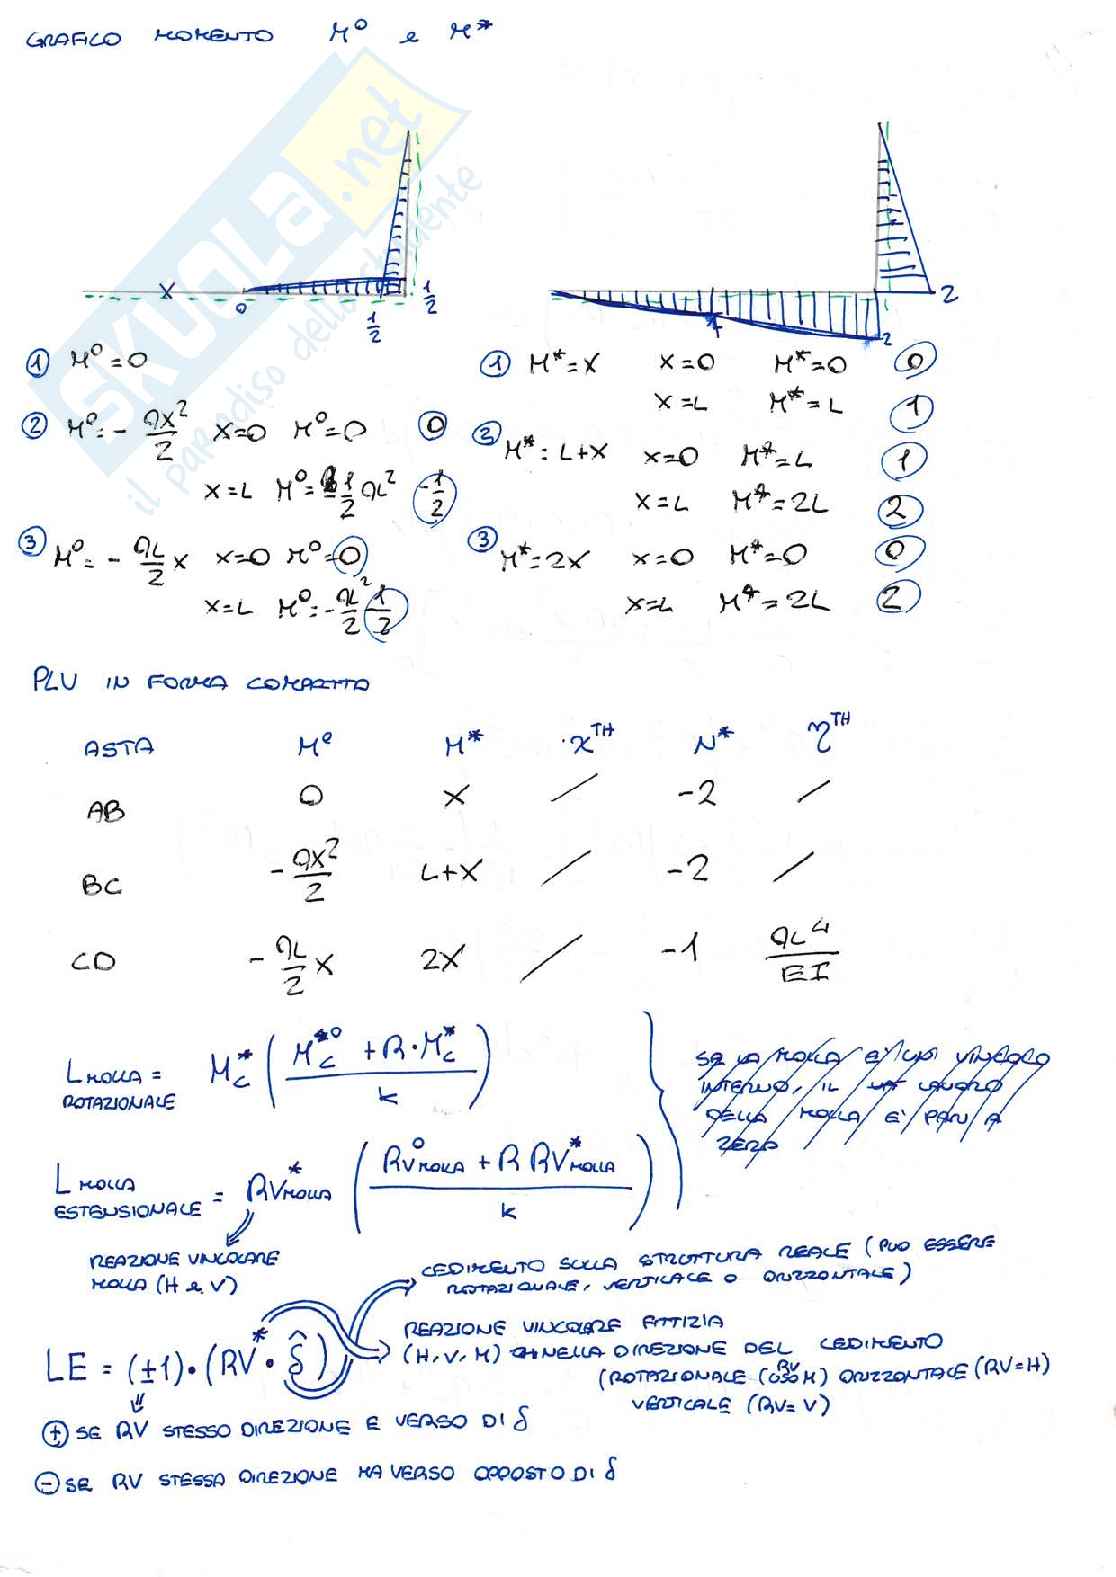 GRAFICO MOMENTO M⁰ e M*
SKUOLA.net
il paradiso dello studente
x 0 1/2 1/2
1 2 2
① M⁰=0
② M⁰=-qx²/2 x=0 M⁰=0 0
x=L M⁰=-1/2 qL² -1/2
③ M⁰=-qL/2 x x=0 M⁰=0
x=L M⁰=-qL²/2 1/2
① M*=x x=0 M*=0 0
x=L M*=L 1
② M*: L+x x=0 M*=L 1
x=L M*=2L 2
③ M*=2x x=0 M*=0 0
x=L M*=2L 2
PLV IN FORMA COMPATTA
ASTA M⁰ M* χᵀᴴ N* ηᵀᴴ
AB 0 x / -2 /
BC -qx²/2 L+x / -2 /
CD -qL/2 x 2x / -1 qL⁴/EI
L MOLLA ROTAZIONALE = M*c ( (M⁰c + R·M*c) / k )
SE LA MOLLA E' UN VINCOLO
INTERNO, IL LAVORO
DELLA MOLLA E' PARI A
ZERO
L MOLLA ESTENSIONALE = RV*MOLLA ( (RV⁰MOLLA + R RV*MOLLA) / k )
REAZIONE VINCOLARE
MOLLA (H e V)
CEDIMENTO SULLA STRUTTURA REALE (PUO ESSERE
ROTAZIONALE, VERTICALE O ORIZZONTALE)
REAZIONE VINCOLARE FITTIZIA
(H, V, M) NELLA DIREZIONE DEL CEDIMENTO
(ROTAZIONALE (RV M) ORIZZONTALE (RV=H)
VERTICALE (RV=V)
LE = (±1)·(RV*·δ̂)
⊕ SE RV STESSO DIREZIONE E VERSO DI δ
⊖ SE RV STESSA DIREZIONE MA VERSO OPPOSTO DI δ